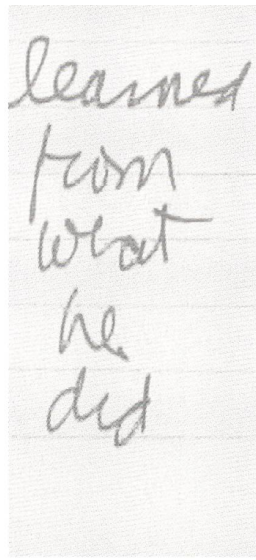 learned
from
what
he
did